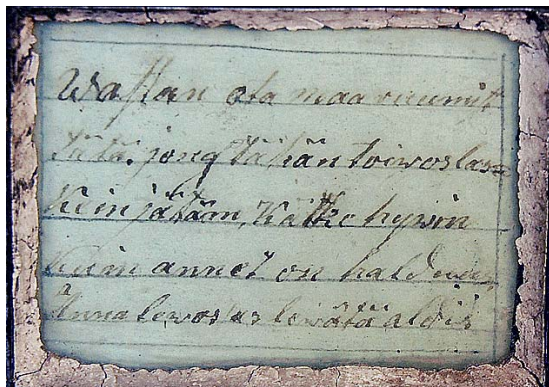 Wastan ota maa ruumist
tätä. jonga tähän toiwos lasen
Kuin jätään, Kätke hywin
Kuin annet on halduus
Anna lewos as lewätä aldis